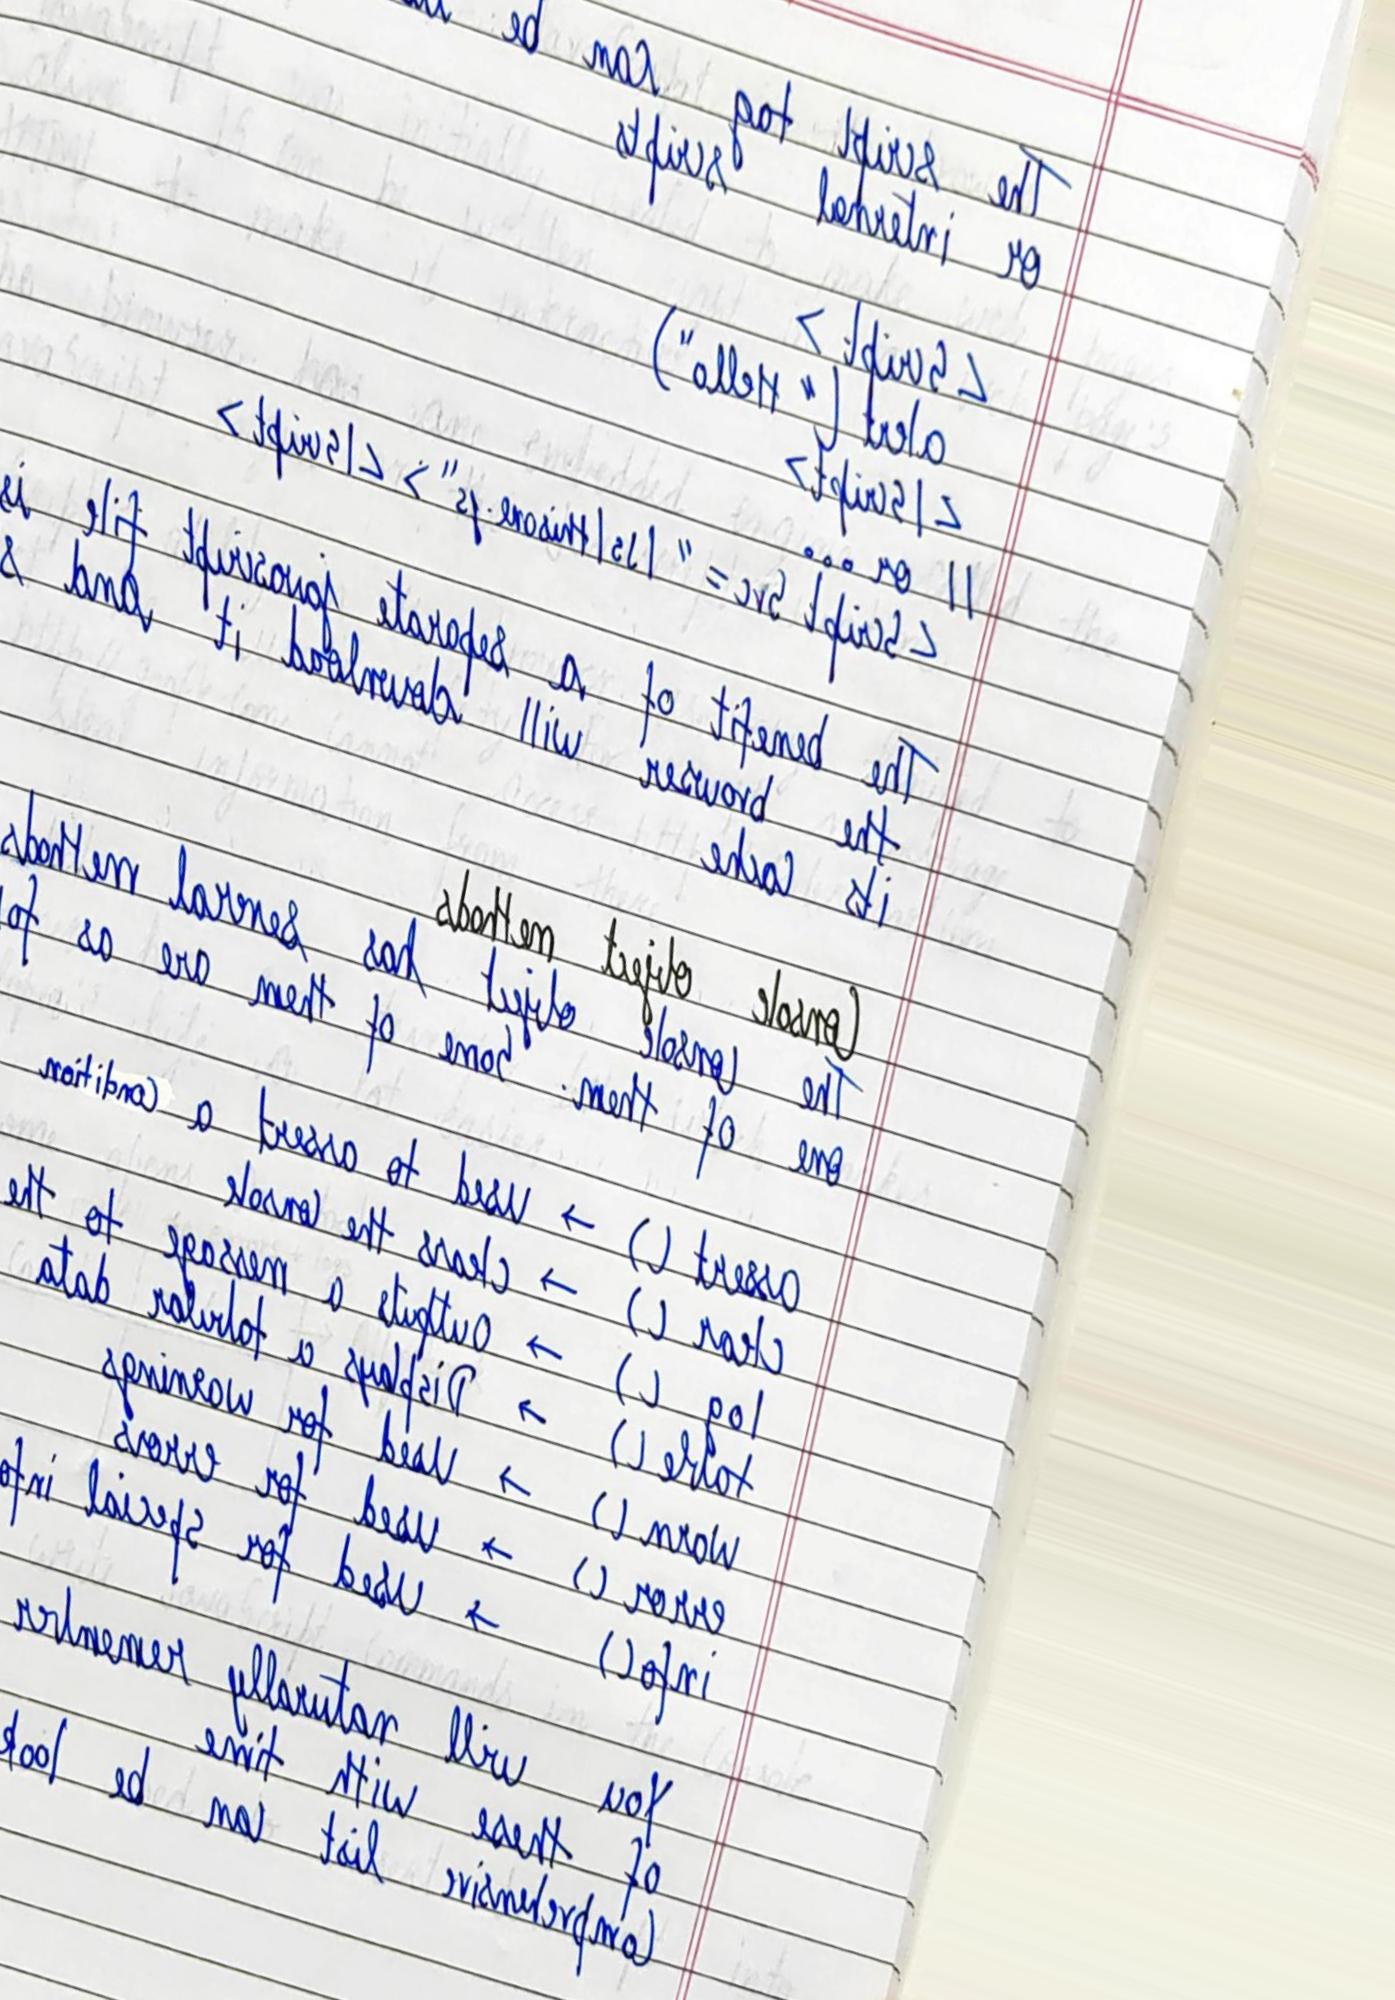 The script tag can be
or internal scripts
<Script>
alert ("Hello")
</script>
// or ...
<Script Src = "/Js/thisone.js"> </script>
The benefit of a separate javascript file is
the browser will download it and s
its Cache
Console object methods
The Console object has several methods
one of them. Some of them are as fol
assert () → Used to assert a Condition
clear () → clears the Console
log () → Outputs a message to the
table () → Displays a tabular data
warn () → Used for warnings
error () → Used for errors
info() → Used for special info
You will naturally remember
of these with time
Comprehensive list can be look